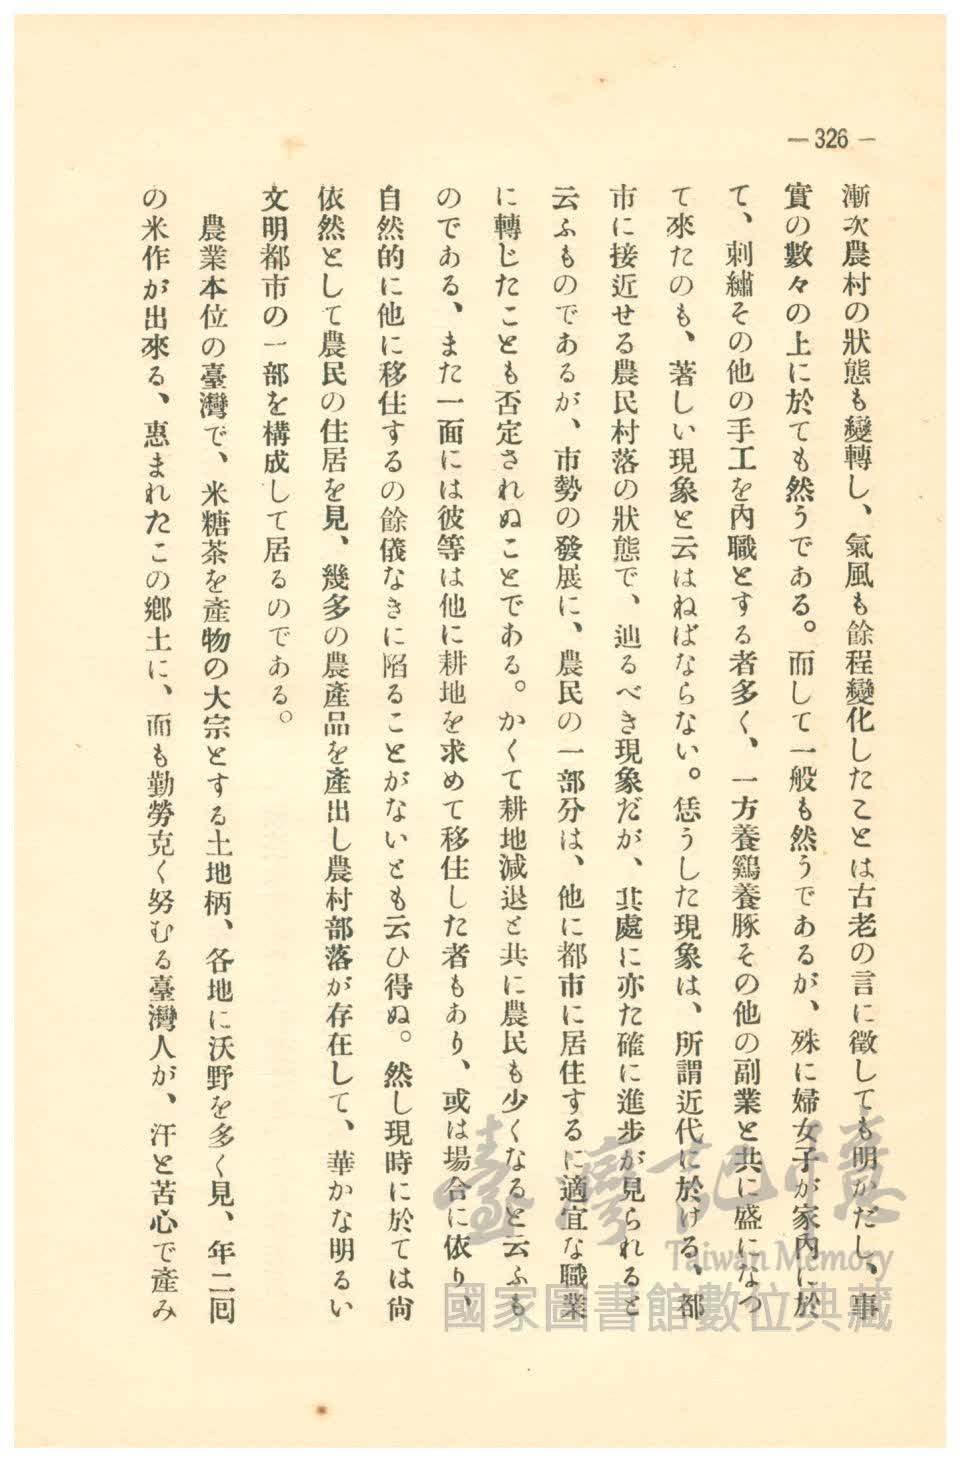 — 326 —
漸次農村の狀態も變轉し、氣風も餘程變化したことは古老の言に徵しても明かだし、事
實の數々の上に於ても然うである。而して一般も然うであるが、殊に婦女子が家內に於
て、刺繡その他の手工を內職とする者多く、一方養鷄養豚その他の副業と共に盛になつ
て來たのも、著しい現象と云はねばならない。恁うした現象は、所謂近代に於ける、都
市に接近せる農民村落の狀態で、辿るべき現象だが、其處に亦た確に進步が見られると
云ふものであるが、市勢の發展に、農民の一部分は、他に都市に居住するに適宜な職業
に轉じたことも否定されぬことである。かくて耕地減退と共に農民も少くなると云ふも
のである、また一面には彼等は他に耕地を求めて移住した者もあり、或は場合に依り、
自然的に他に移住するの餘儀なきに陷ることがないとも云ひ得ぬ。然し現時に於ては尙
依然として農民の住居を見、幾多の農產品を產出し農村部落が存在して、華かな明るい
文明都市の一部を構成して居るのである。
農業本位の臺灣で、米糖茶を產物の大宗とする土地柄、各地に沃野を多く見、年二回
の米作が出來る、惠まれたこの鄕土に、而も勤勞克く努むる臺灣人が、汗と苦心で產み
臺灣記憶
Taiwan Memory
國家圖書館數位典藏